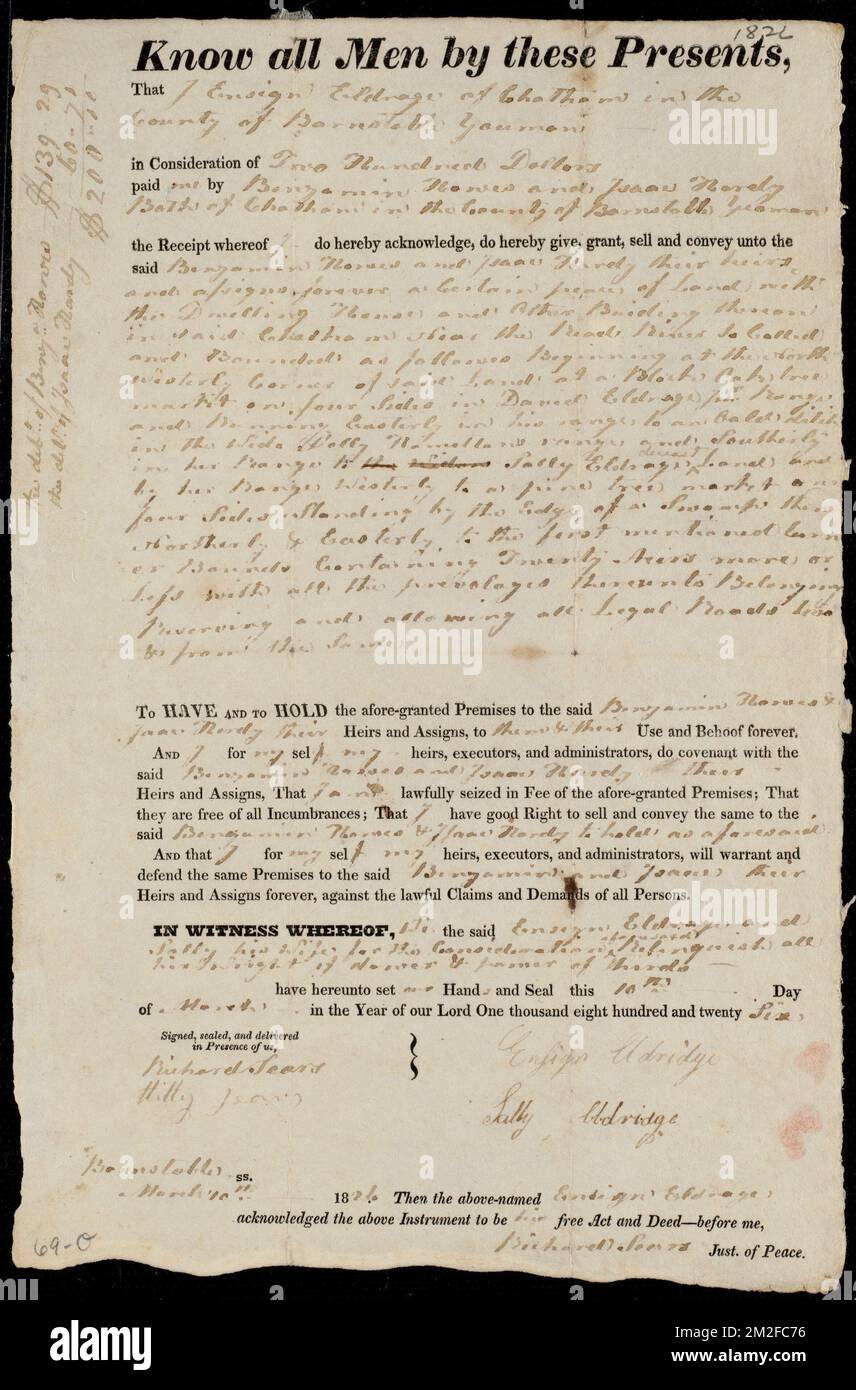 1826
Know all Men by these Presents,
That I Ensign Eldrage of Chatham in the
County of Barnstable Yeoman
in Consideration of Two Hundred Dollors
paid me by Benjamin Howes and Isaac Hardy
Both of Chatham in the County of Barnstable Yeoman
the Receipt whereof I do hereby acknowledge, do hereby give, grant, sell and convey unto the
said Benjamin Howes and Isaac Hardy their heirs
and asigns forever a Certain peace of Land with
the Dwelling House and Other Buiding thereon
in said Chatham Near the Read River So Called
and Bounded as follows Beginning at the North
westerly Corner of said Land at a Black Oak tree
markt on four Sides in David Eldrage Jur Range
and Running Easterly in his range to an Oald ditch
in the Wido Polly Hamiltons range and Southerly
in her Range to the Widow Sally Eldrage Land and
by her Range Westerly to a pine tree market on
four Sides Standing by the Edge of a Swamp then
Northerly & Easterly to the first mentioned Corn
er Bounds Containing Twenty Acirs more or
Less with all the prevolages thereunto Belonging
Reserving and allowing all Legal Roads too
& from the Same
To HAVE AND TO HOLD the afore-granted Premises to the said Benjamin Howes &
Isaac Hardy their Heirs and Assigns, to them & their Use and Behoof forever.
AND I for my self my heirs, executors, and administrators, do covenant with the
said Benjamin Howes and Isaac Hardy their
Heirs and Assigns, That I am lawfully seized in Fee of the afore-granted Premises; That
they are free of all Incumbrances; That I have good Right to sell and convey the same to the
said Benjamin Howes & Isaac Hardy to hold as aforesaid
AND that I for my self my heirs, executors, and administrators, will warrant and
defend the same Premises to the said Benjamin and Isaac their
Heirs and Assigns forever, against the lawful Claims and Demands of all Persons.
IN WITNESS WHEREOF, We the said Ensign Eldrage and
Sally his Wife for the Consideration Relinquish all
her Wright of dower & power of thirds
have hereunto set our Hands and Seal this 10th Day
of March in the Year of our Lord One thousand eight hundred and twenty Six
Signed, sealed, and delivered
in Presence of us,
Richard Sears
Hitty Sears
Ensign Eldridge
Sally Eldridge
Barnstable ss.
March 10th 1826 Then the above-named Ensign Eldrage
acknowledged the above Instrument to be his free Act and Deed—before me,
Richard Sears Just. of Peace.
69-O
the debt of Benj. Howes $139 29
the debt of Isaac Hardy 60-71
$200-00
alamy
alamy
Image ID: 2M2FC76
www.alamy.com